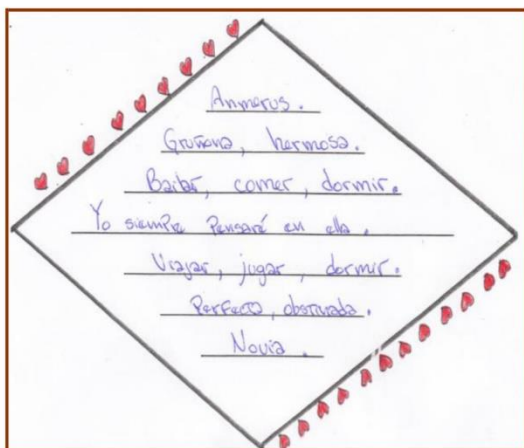 Gruñona, hermosa.
Bailar, comer, dormir.
Yo siempre Pensaré en ella.
Viajar, jugar, dormir.
Perfecta, obstinada.
Novia.